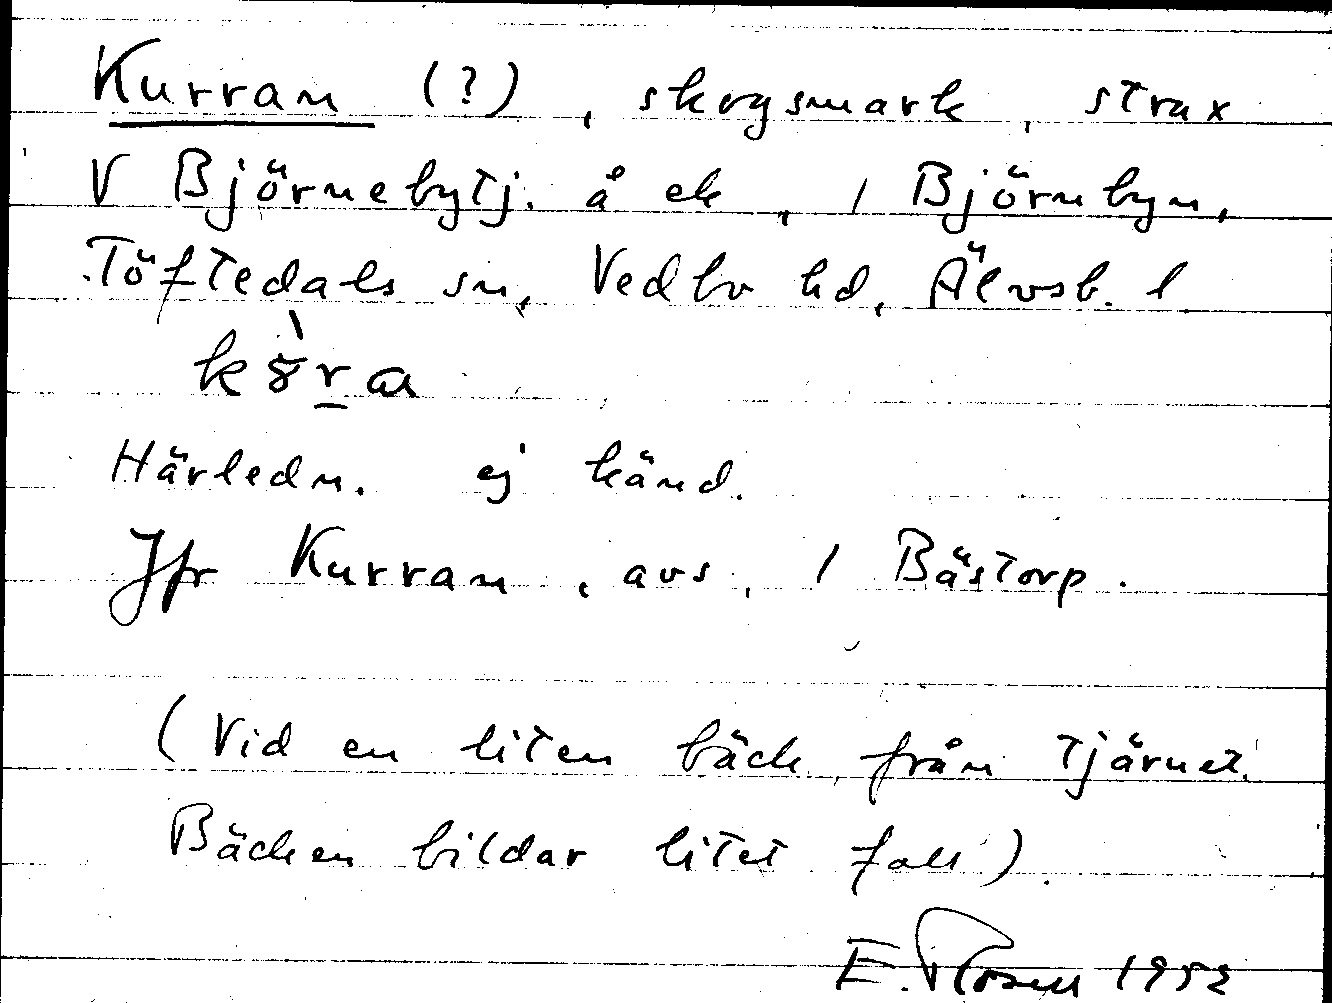 Kurran (?), skogsmark, strax
V Björnebytj. å ek, i Björnbyn,
Töftedals sn, Vedbo hd, Älvsb. l
Härledn. ej känd.
Jfr Kurran, avs, i Bästorp.
(Vid en liten bäck från tjärnet.
Bäcken bildar litet fall).
E. Rosell 1952